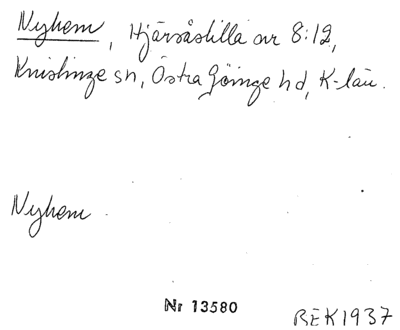 Nyhem, Hjärsåslilla nr 8:12,
Knislinge sn, Östra Göinge hd, K-län.
Nyhem
Nr 13580
BEK1937